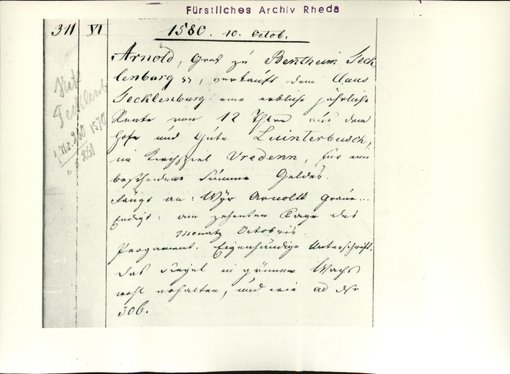 Fürstliches Archiv Rheda
311 VI 1580. 10. Octob.
Arnold, Graf zu Bentheim Teck
lenburg &&, verkauft dem Claus
Tecklenburg eine erbliche jährliche
Rente von 12 Thlr aus dem
Hofe und Gute Luinterbusch,
im Kirchspiel Vredenn, für eine
bescheidene Summe Geldes.
Fängt an: Wyr Arnoldt graue...
Endigt: am zehenten Tage des
Monatz Octobris
Pergament. Eigenhändige Unterschrift.
Das Siegel in grünem Wachs
wohl erhalten, und wie ad No
306.